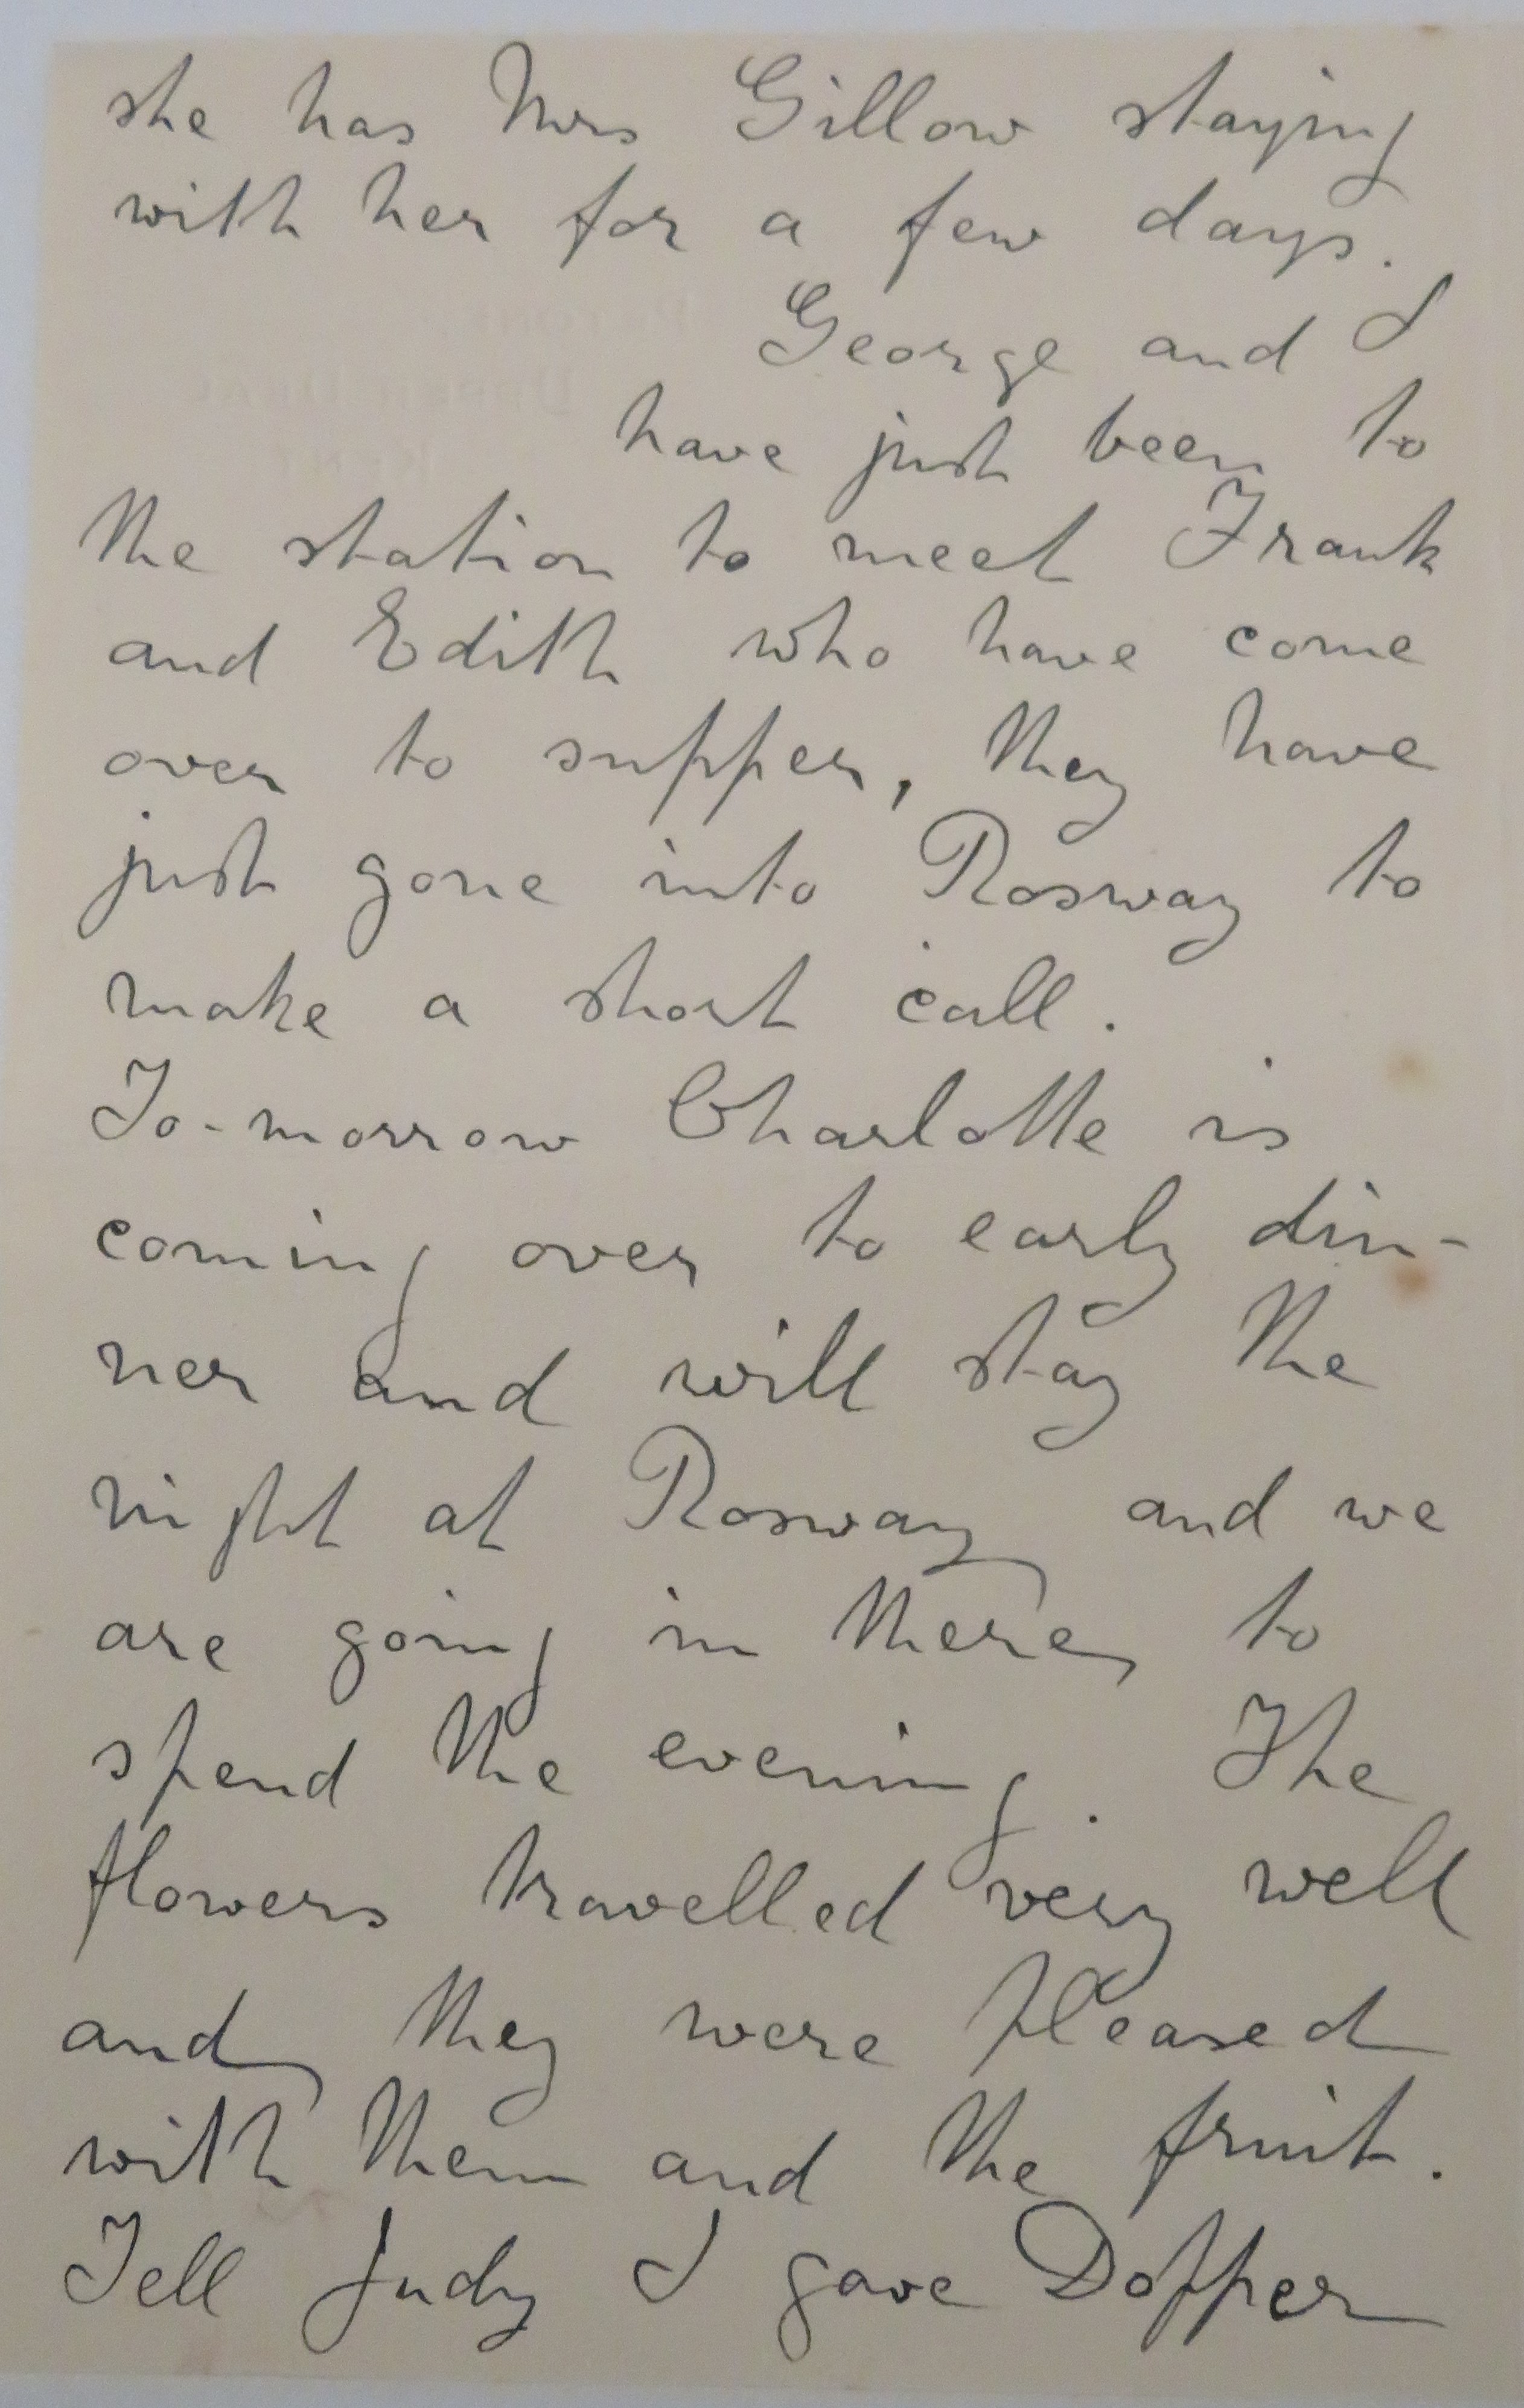 she has Mrs Gillow staying
with her for a few days.
George and I
have just been to
the station to meet Frank
and Edith who have come
over to supper, they have
just gone into Rosway to
make a short call.
To-morrow Charlotte is
coming over to early din-
ner and will stay the
night at Rosway and we
are going in there to
spend the evening. The
flowers travelled very well
and they were pleased
with them and the fruit.
Tell Judy I gave Dopper